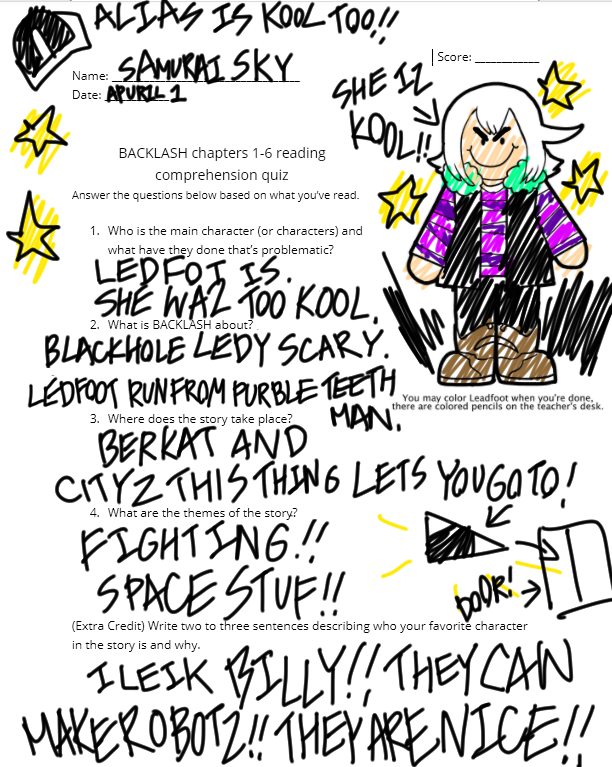 ALIAS IS KOOL TOO!!
Name: SAMURAI SKY
Score:
Date: APURIL 1
SHE IZ
KOOL!!
BACKLASH chapters 1-6 reading
comprehension quiz
Answer the questions below based on what you've read.
1. Who is the main character (or characters) and
what have they done that's problematic?
LEDFOT IS.
SHE WAZ TOO KOOL.
2. What is BACKLASH about?
BLACKHOLE LEDY SCARY.
LEDFOOT RUN FROM PURBLE TEETH
MAN.
You may color Leadfoot when you're done,
there are colored pencils on the teacher's desk.
3. Where does the story take place?
BERKAT AND
CITYZ THIS THING LETS YOU GO TO!
4. What are the themes of the story?
FIGHTING!!
SPACE STUF!!
DOOR!
(Extra Credit) Write two to three sentences describing who your favorite character
in the story is and why.
I LEIK BILLY!! THEY CAN
MAKE ROBOTZ!! THEY ARE NICE!!